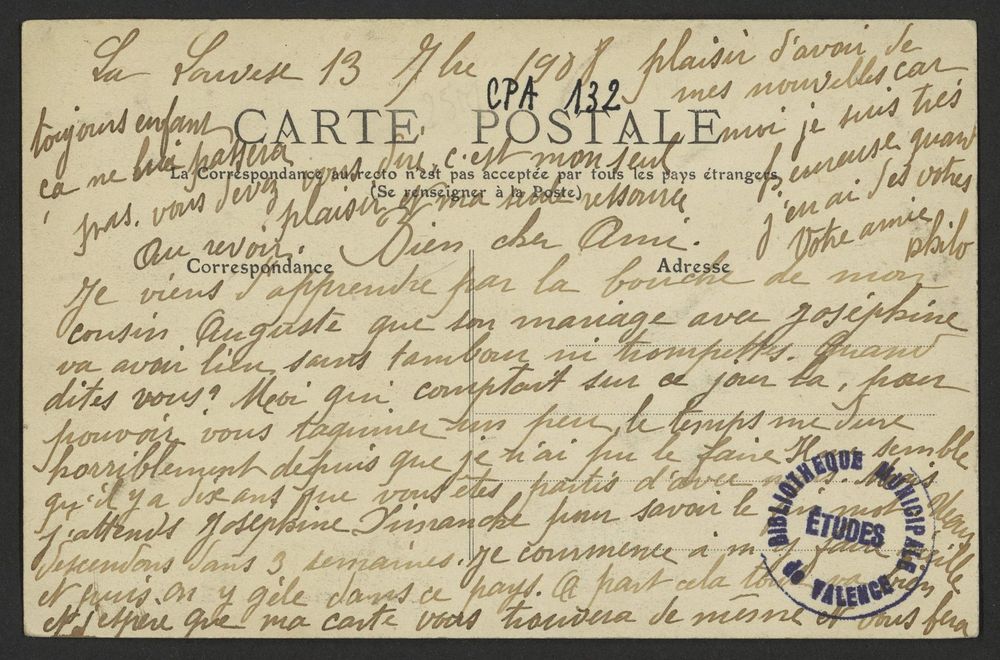 La Louvesc 13 7bre 1908
CPA 132
CARTE POSTALE
La Correspondance au recto n'est pas acceptée par tous les pays étrangers
(Se renseigner à la Poste)
Correspondance
Adresse
Bien cher Ami.
Je viens d'apprendre par la bouche de mon
cousin Auguste que son mariage avec Joséphine
va avoir lieu sans tambour ni trompette. Quand
dites vous? Moi qui comptait sur ce jour la, pour
pouvoir vous taquiner un peu, le temps me dure
horriblement depuis que je n'ai pu le faire Il me semble
qu'il y a dix ans que vous êtes partis d'avec nous. Mais
j'attends Joséphine Dimanche pour savoir le fin mot. Nous
descendons dans 3 semaines. Je commence à m'y faire vieille
et puis on y gèle dans ce pays. A part cela tout va bien
et j'espère que ma carte vous trouvera de même et vous fera
plaisir d'avoir de
mes nouvelles car
moi je suis très
heureuse quand
j'en ai des votres
Votre amie
philo
toujours enfant
ça ne lui passera
pas. vous devez vous dire, c'est mon seul
plaisir et ma ressource
Au revoir.
BIBLIOTHEQUE MUNICIPALE
ÉTUDES
de VALENCE